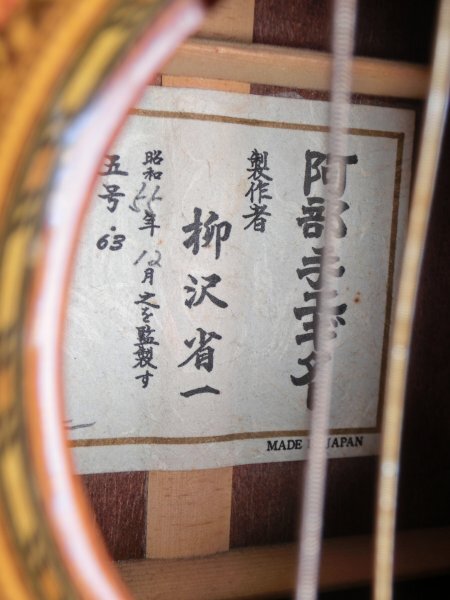 阿部手工ギター
製作者
柳沢省一
昭和55年 12月之を監製す
五号.63
MADE IN JAPAN